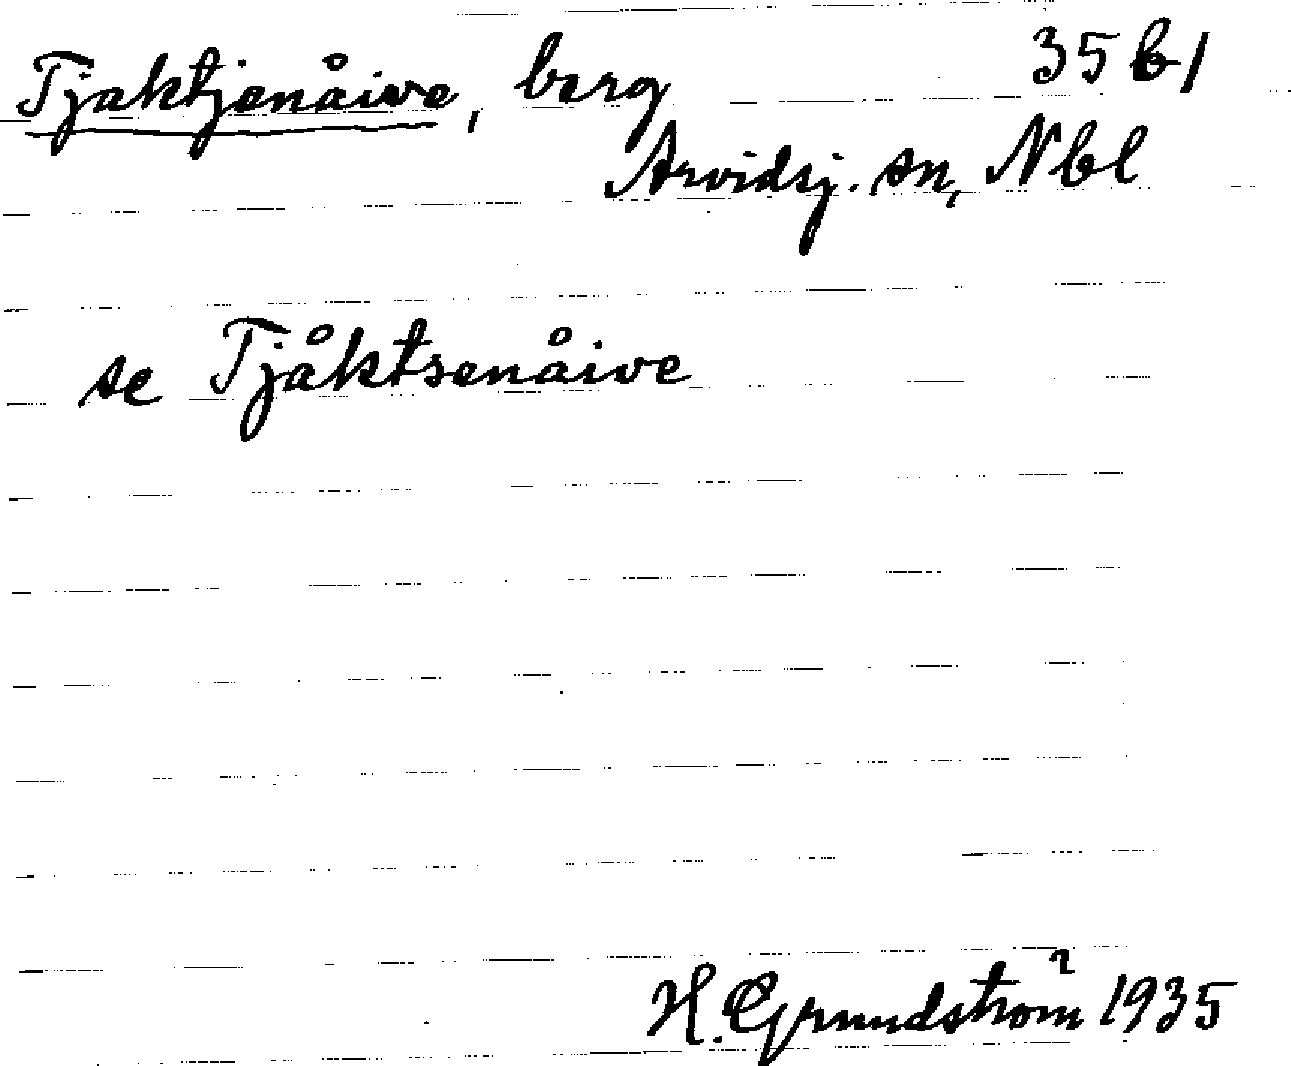 Tjaktjenåive, berg 35 b 1
Arvidsj. sn, Nbl
se Tjåktsenåive
H. Grundström 1935